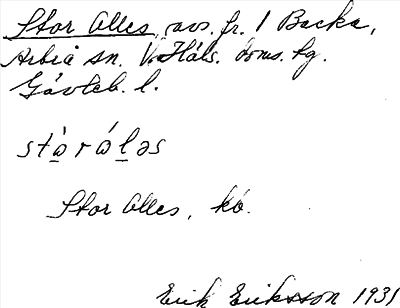 Stor Olles, avs. fr. 1 Backa,
Arbrå sn. V. Häls. doms. hg.
Gävleb. l.
stὰrάləs
Stor Olles, kb.
Erik Eriksson 1931